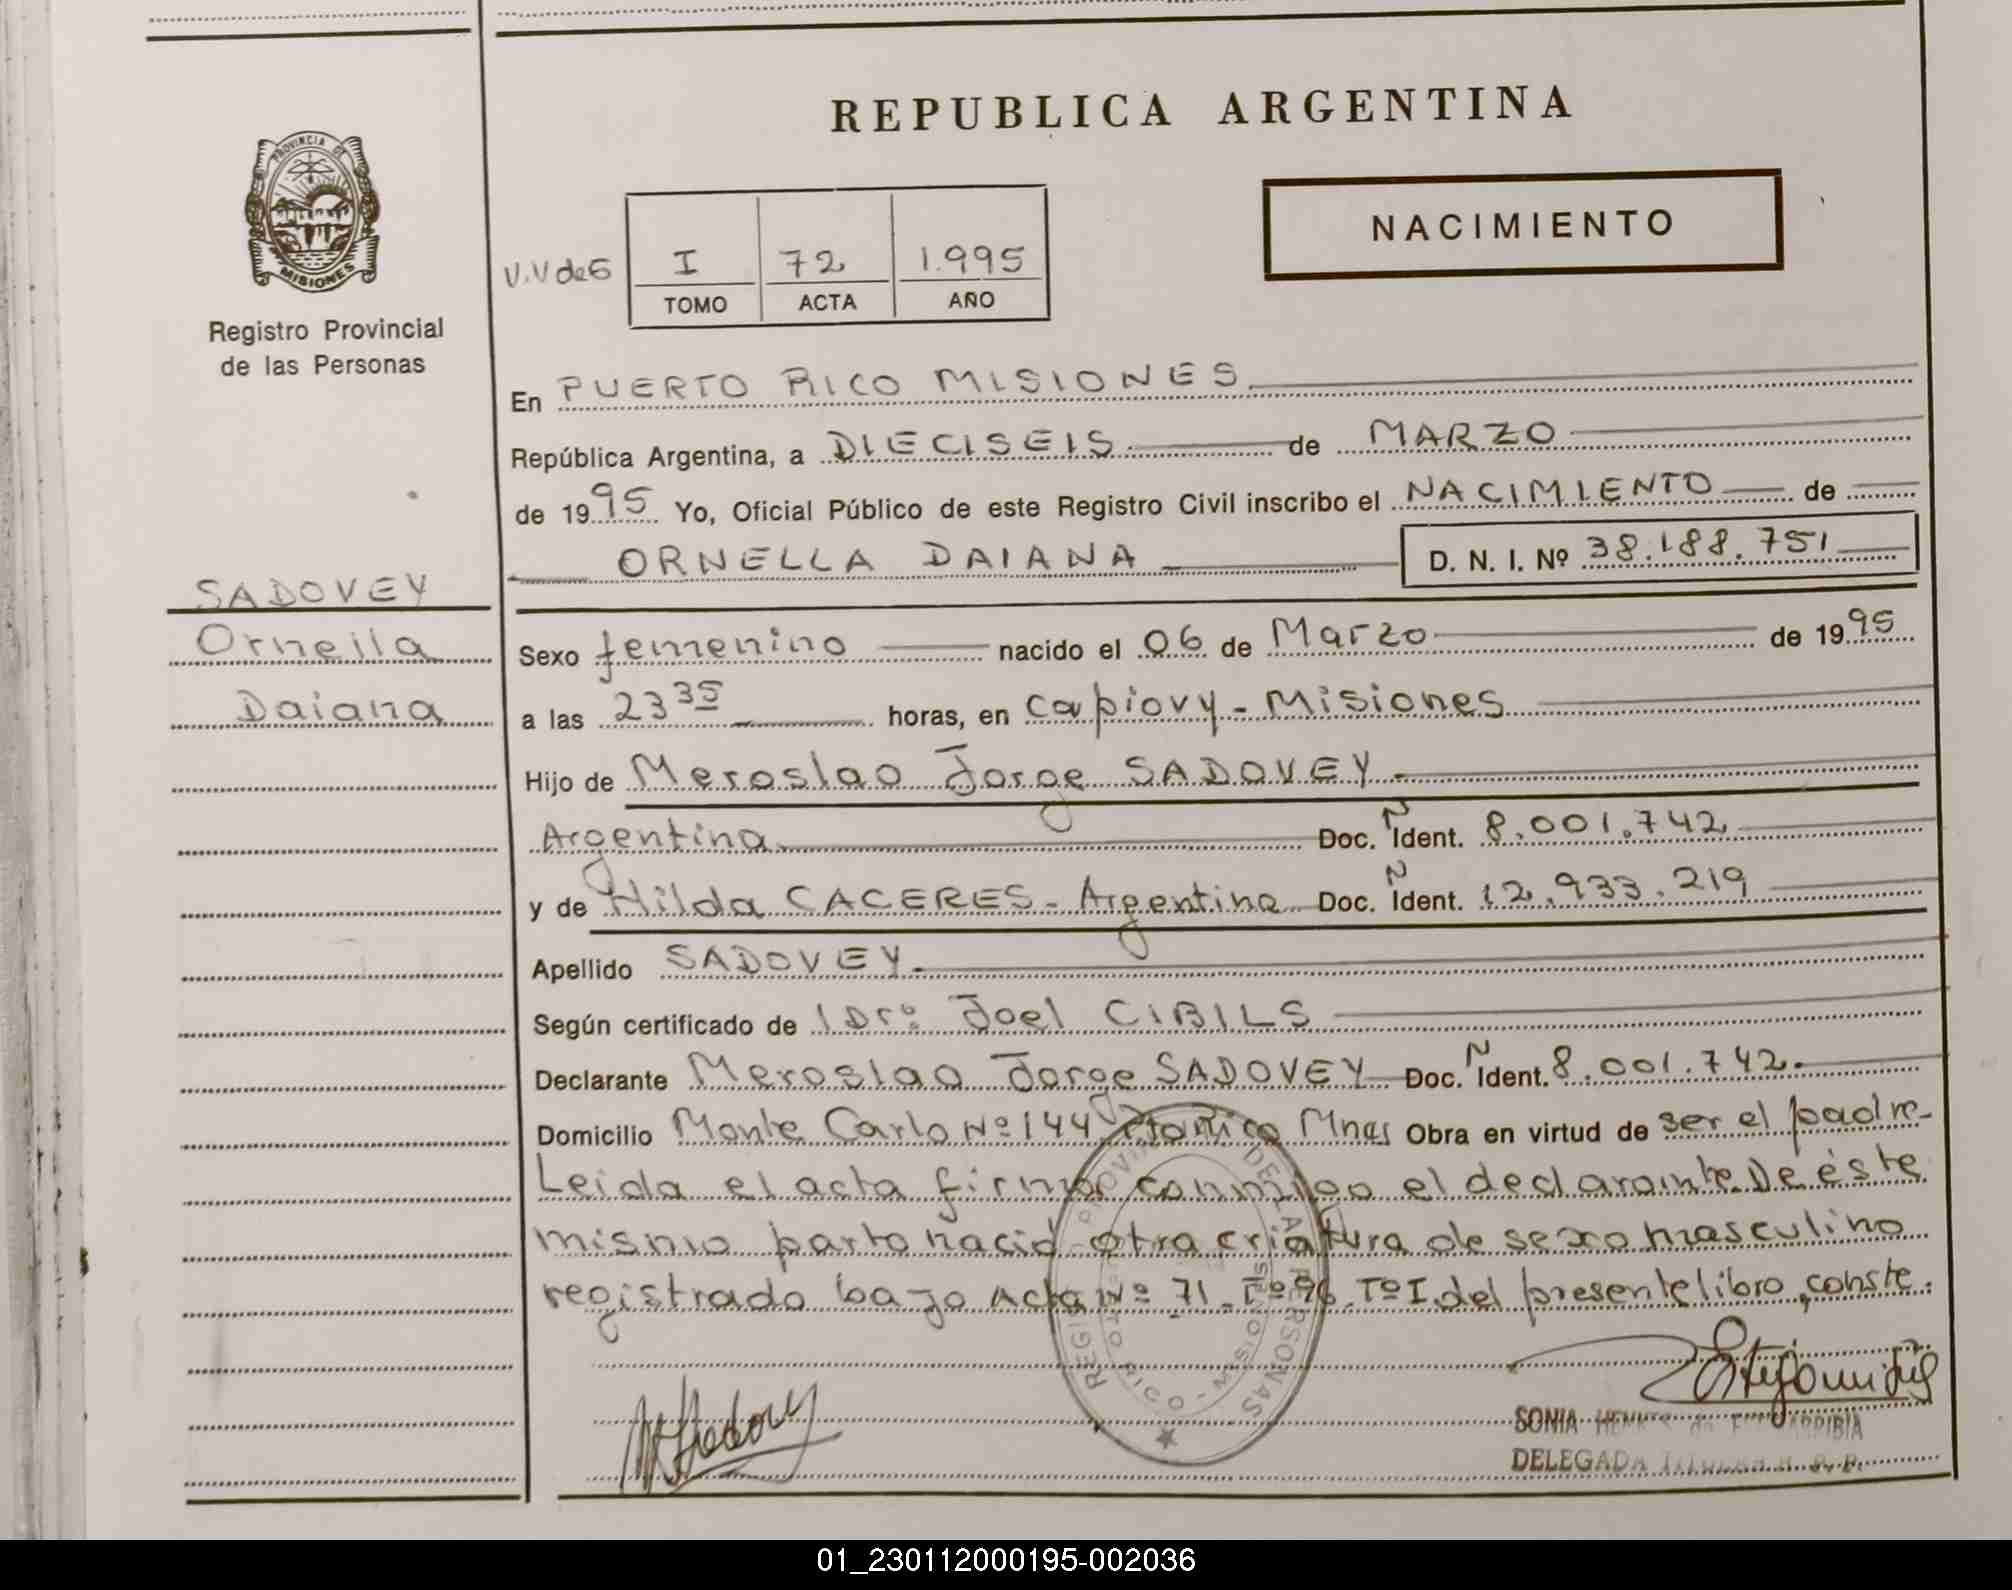 REPUBLICA ARGENTINA
PROVINCIA DE
MISIONES
Registro Provincial
de las Personas
NACIMIENTO
V.V de E
I 72 1.995
TOMO ACTA AÑO
En PUERTO RICO MISIONES
República Argentina, a DIECISEIS de MARZO
de 1995 Yo, Oficial Público de este Registro Civil inscribo el NACIMIENTO de
ORNELLA DAIANA D. N. I. Nº 38.188.751
SADOVEY
Ornella
Daiana
Sexo femenino nacido el 06 de Marzo de 1995
a las 23 35 horas, en Capiovy - Misiones
Hijo de Meroslao Jorge SADOVEY
Argentina Doc. N Ident. 8.001.742
y de Hilda CACERES - Argentina Doc. N Ident. 12.933.219
Apellido SADOVEY
Según certificado de Dr. Joel CIBILS
Declarante Meroslao Jorge SADOVEY Doc. N Ident. 8.001.742.
Domicilio Monte Carlo Nº 144 Pto Rico Mnes Obra en virtud de ser el padre-
Leida el acta firma conmigo el declarante. De éste
mismo parto nació otra criatura de sexo masculino
registrado bajo Acta Nº 71 Fº 96 Tº I. del presente libro, conste.
REGISTRO PROVINCIAL DE LAS PERSONAS
PUERTO RICO - MISIONES
SONIA
DELEGADA TITULAR R. P. P.
01_230112000195-002036